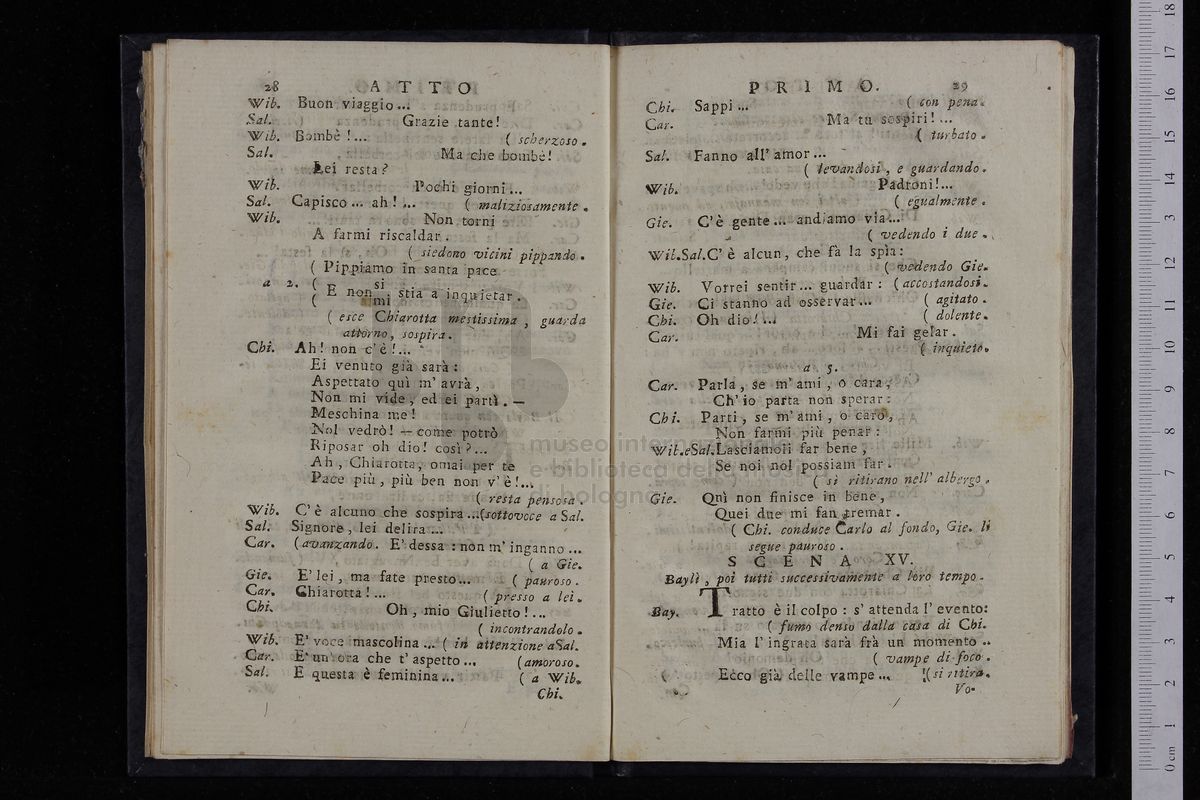 28 ATTO
Wib. Buon viaggio...
Sal. Grazie tante!
Wib. Bombè!... ( scherzoso.
Sal. Ma che bombè!
Lei resta?
Wib. Pochi giorni...
Sal. Capisco... ah!... ( maliziosamente.
Wib. Non torni
A farmi riscaldar.
( siedono vicini pippando.
( Pippiamo in santa pace
a 2. ( E non si stia a inquietar.
( mi
( esce Chiarotta mestissima, guarda
attorno, sospira.
Chi. Ah! non c'è!...
Ei venuto già sarà:
Aspettato quì m'avrà,
Non mi vide, ed ei partì. —
Meschina me!
Nol vedrò! — come potrò
Riposar oh dio! così?...
Ah, Chiarotta, omai per te
Pace più, più ben non v'è!...
( resta pensosa.
Wib. C'è alcuno che sospira...(sottovoce a Sal.
Sal. Signore, lei delira...
Car. (avanzando. E' dessa: non m'inganno...
( a Gie.
Gie. E' lei, ma fate presto... ( pauroso.
Car. Chiarotta!... ( presso a lei.
Chi. Oh, mio Giulietto!...
( incontrandolo.
Wib. E' voce mascolina... ( in attenzione a Sal.
Car. E' un'ora che t'aspetto... (amoroso.
Sal. E questa è feminina... ( a Wib.
Chi.
PRIMO. 29
Chi. Sappi... ( con pena.
Car. Ma tu sospiri!...
( turbato.
Sal. Fanno all'amor...
( levandosi, e guardando.
Wib. Padroni!...
( egualmente.
Gie. C'è gente... andiamo via...
( vedendo i due.
Wib.Sal. C'è alcun, che fà la spia:
( vedendo Gie.
Wib. Vorrei sentir... guardar: (accostandosi.
Gie. Ci stanno ad osservar... ( agitato.
Chi. Oh dio!... ( dolente.
Car. Mi fai gelar.
( inquieto.
a 5.
Car. Parla, se m'ami, o cara,
Ch'io parta non sperar:
Chi. Parti, se m'ami, o caro,
Non farmi più penar:
Wib.eSal. Lasciamoli far bene,
Se noi nol possiam far.
( si ritirano nell'albergo.
Gie. Quì non finisce in bene,
Quei due mi fan tremar.
( Chi. conduce Carlo al fondo, Gie. li
segue pauroso.
SCENA XV.
Baylì, poi tutti successivamente a loro tempo.
Bay. Tratto è il colpo: s'attenda l'evento:
( fumo denso dalla casa di Chi.
Mia l'ingrata sarà frà un momento..
( vampe di foco.
Ecco già delle vampe... (si ritira.
Vo-
museo internazionale
e biblioteca della
di bologna